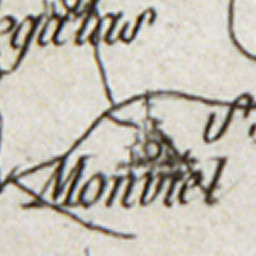 egatas
Monviel